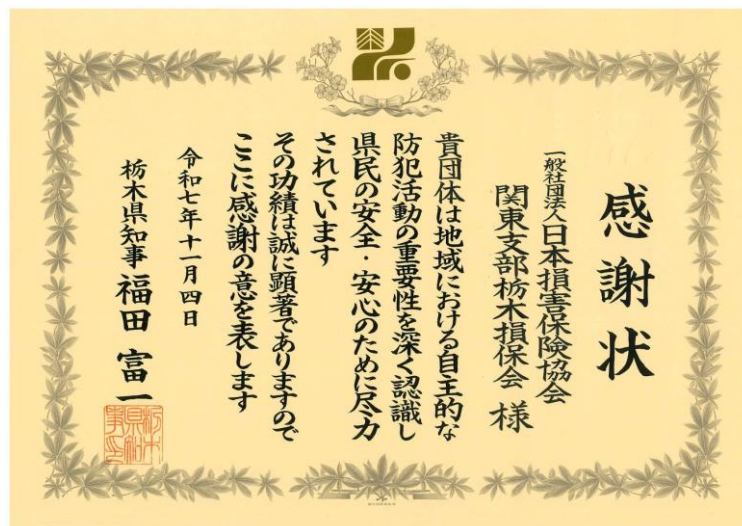 感謝状
一般社団法人日本損害保険協会
関東支部栃木損保会 様
貴団体は地域における自主的な
防犯活動の重要性を深く認識し
県民の安全・安心のために尽力
されています
その功績は誠に顕著でありますので
ここに感謝の意を表します
令和七年十一月四日
栃木県知事 福田 富一
栃木県知事之印